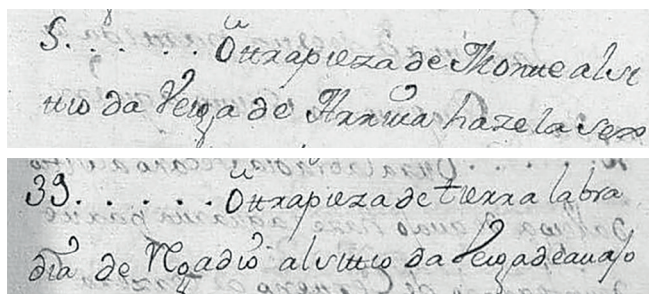 5. . . . . Otra pieza de Monte al si
tio da Veiga de Arriva haze la sex
39. . . . . . Otra pieza de tierra labra
dia de Regadio al sitio da Veiga de avajo